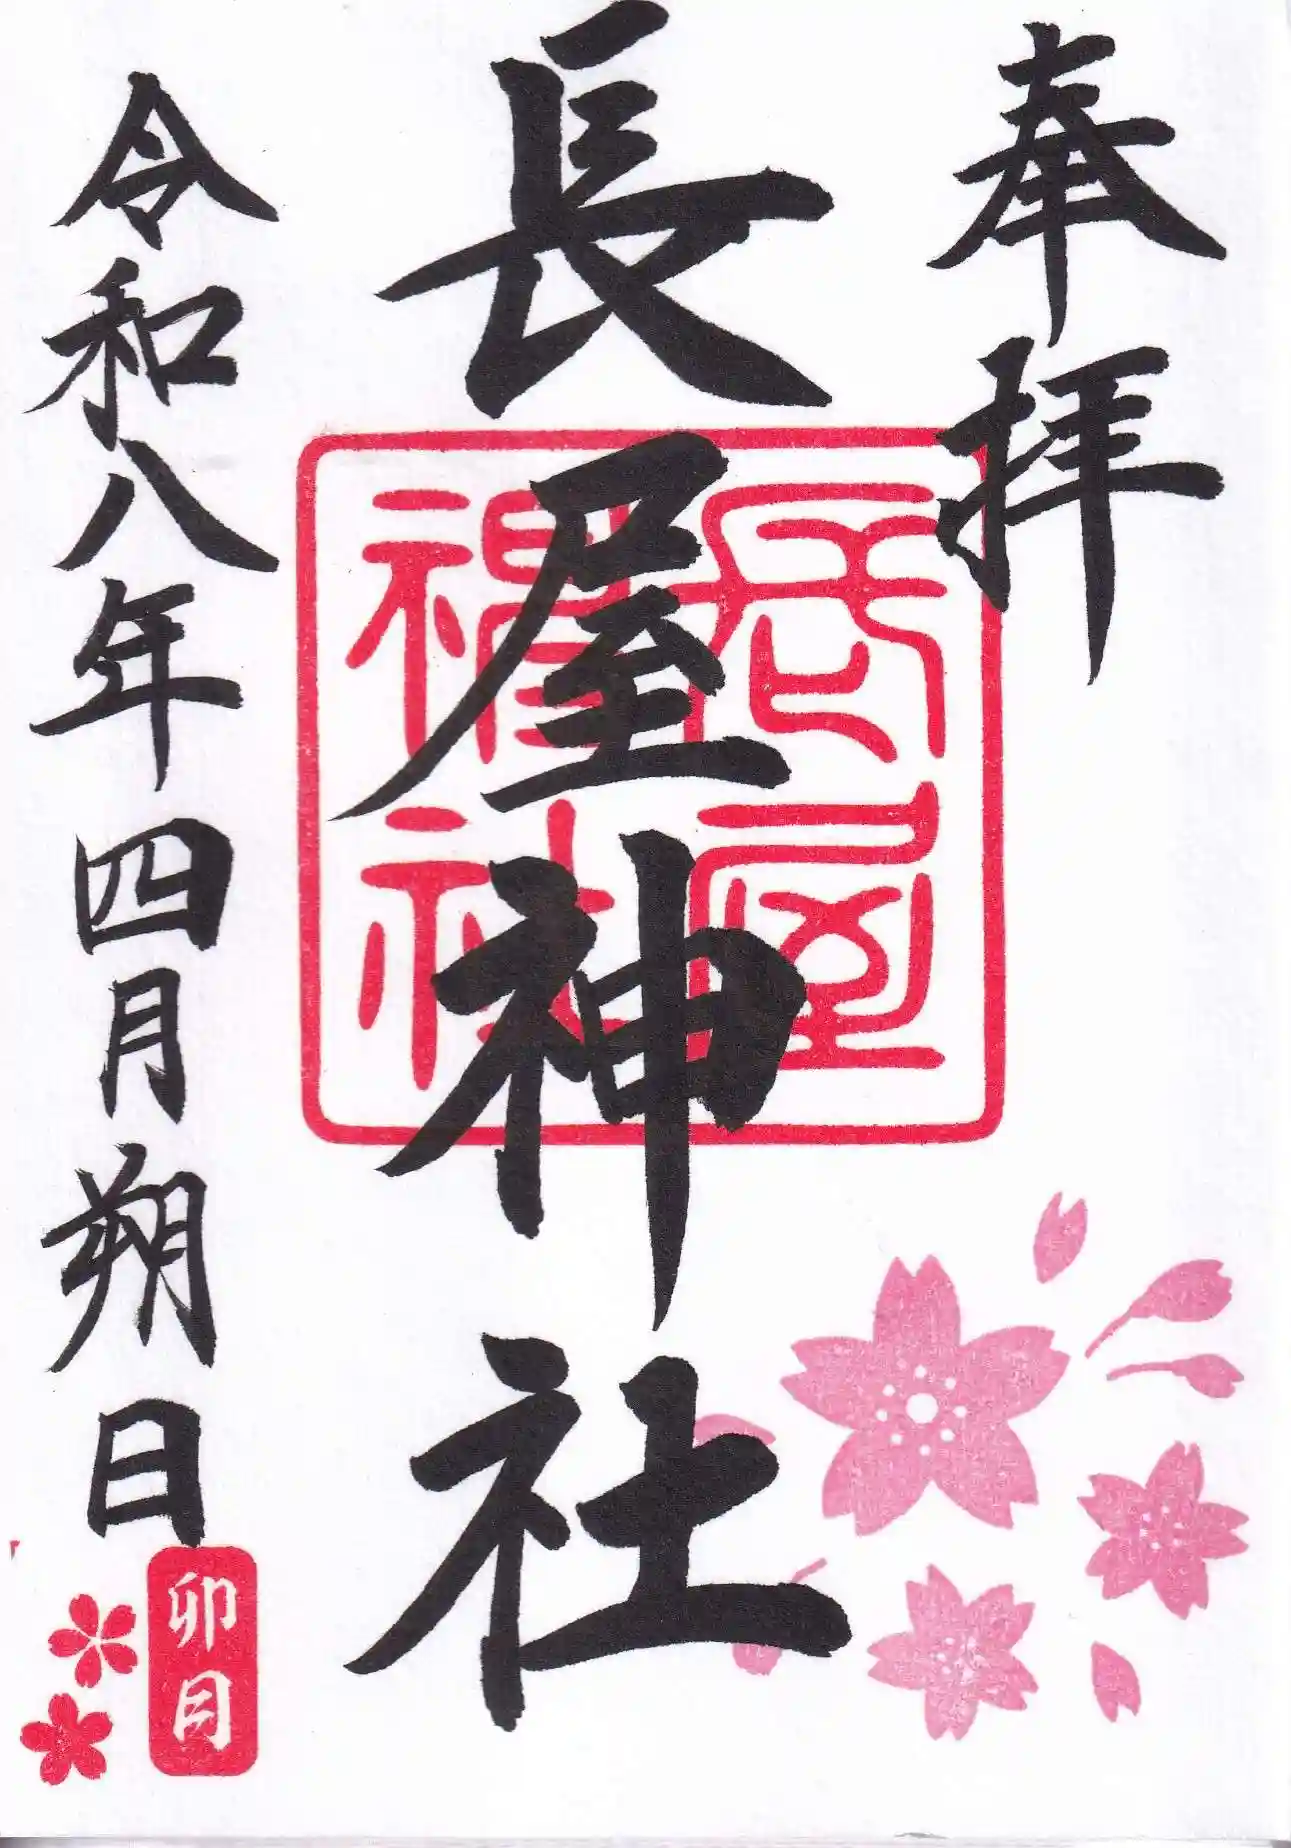 奉拝
長屋神社
長屋
神社
令和八年四月朔日
卯月